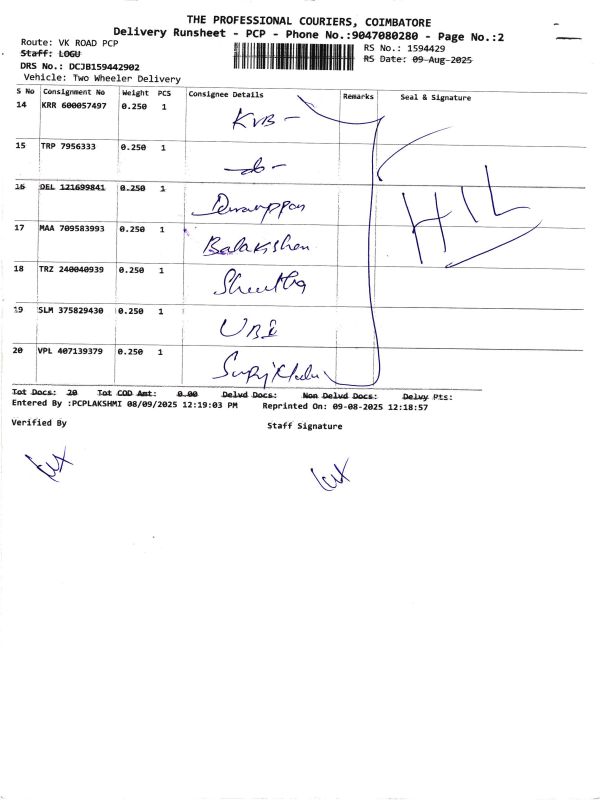 THE PROFESSIONAL COURIERS, COIMBATORE
Delivery Runsheet - PCP - Phone No.:9047080280 - Page No.:2
Route: VK ROAD PCP
RS No.: 1594429
Staff: LOGU
RS Date: 09-Aug-2025
DRS No.: DCJB159442902
Vehicle: Two Wheeler Delivery
S No Consignment No Weight PCS Consignee Details Remarks Seal & Signature
14 KRR 600057497 0.250 1 KVB -
15 TRP 7956333 0.250 1
16 DEL 121699841 0.250 1
17 MAA 709583993 0.250 1
18 TRZ 240040939 0.250 1
19 SLM 375829430 0.250 1 UBI
20 VPL 407139379 0.250 1
HIL
Tot Docs: 20 Tot COD Amt: 0.00 Delvd Docs: Non Delvd Docs: Delvy Pts:
Entered By :PCPLAKSHMI 08/09/2025 12:19:03 PM Reprinted On: 09-08-2025 12:18:57
Verified By Staff Signature